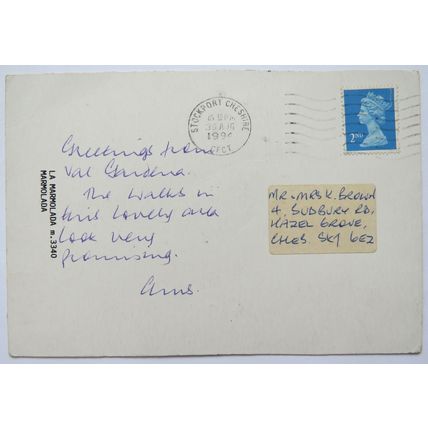 STOCKPORT CHESHIRE
1994
2ND
Greetings from
Val Gardena.
The walks in
this lovely area
look very
promising.
LA MARMOLADA m. 3340
MARMOLADA
MR & MRS K. BROWN
4, SUDBURY RD,
HAZEL GROVE,
CHES. SK7 6EZ